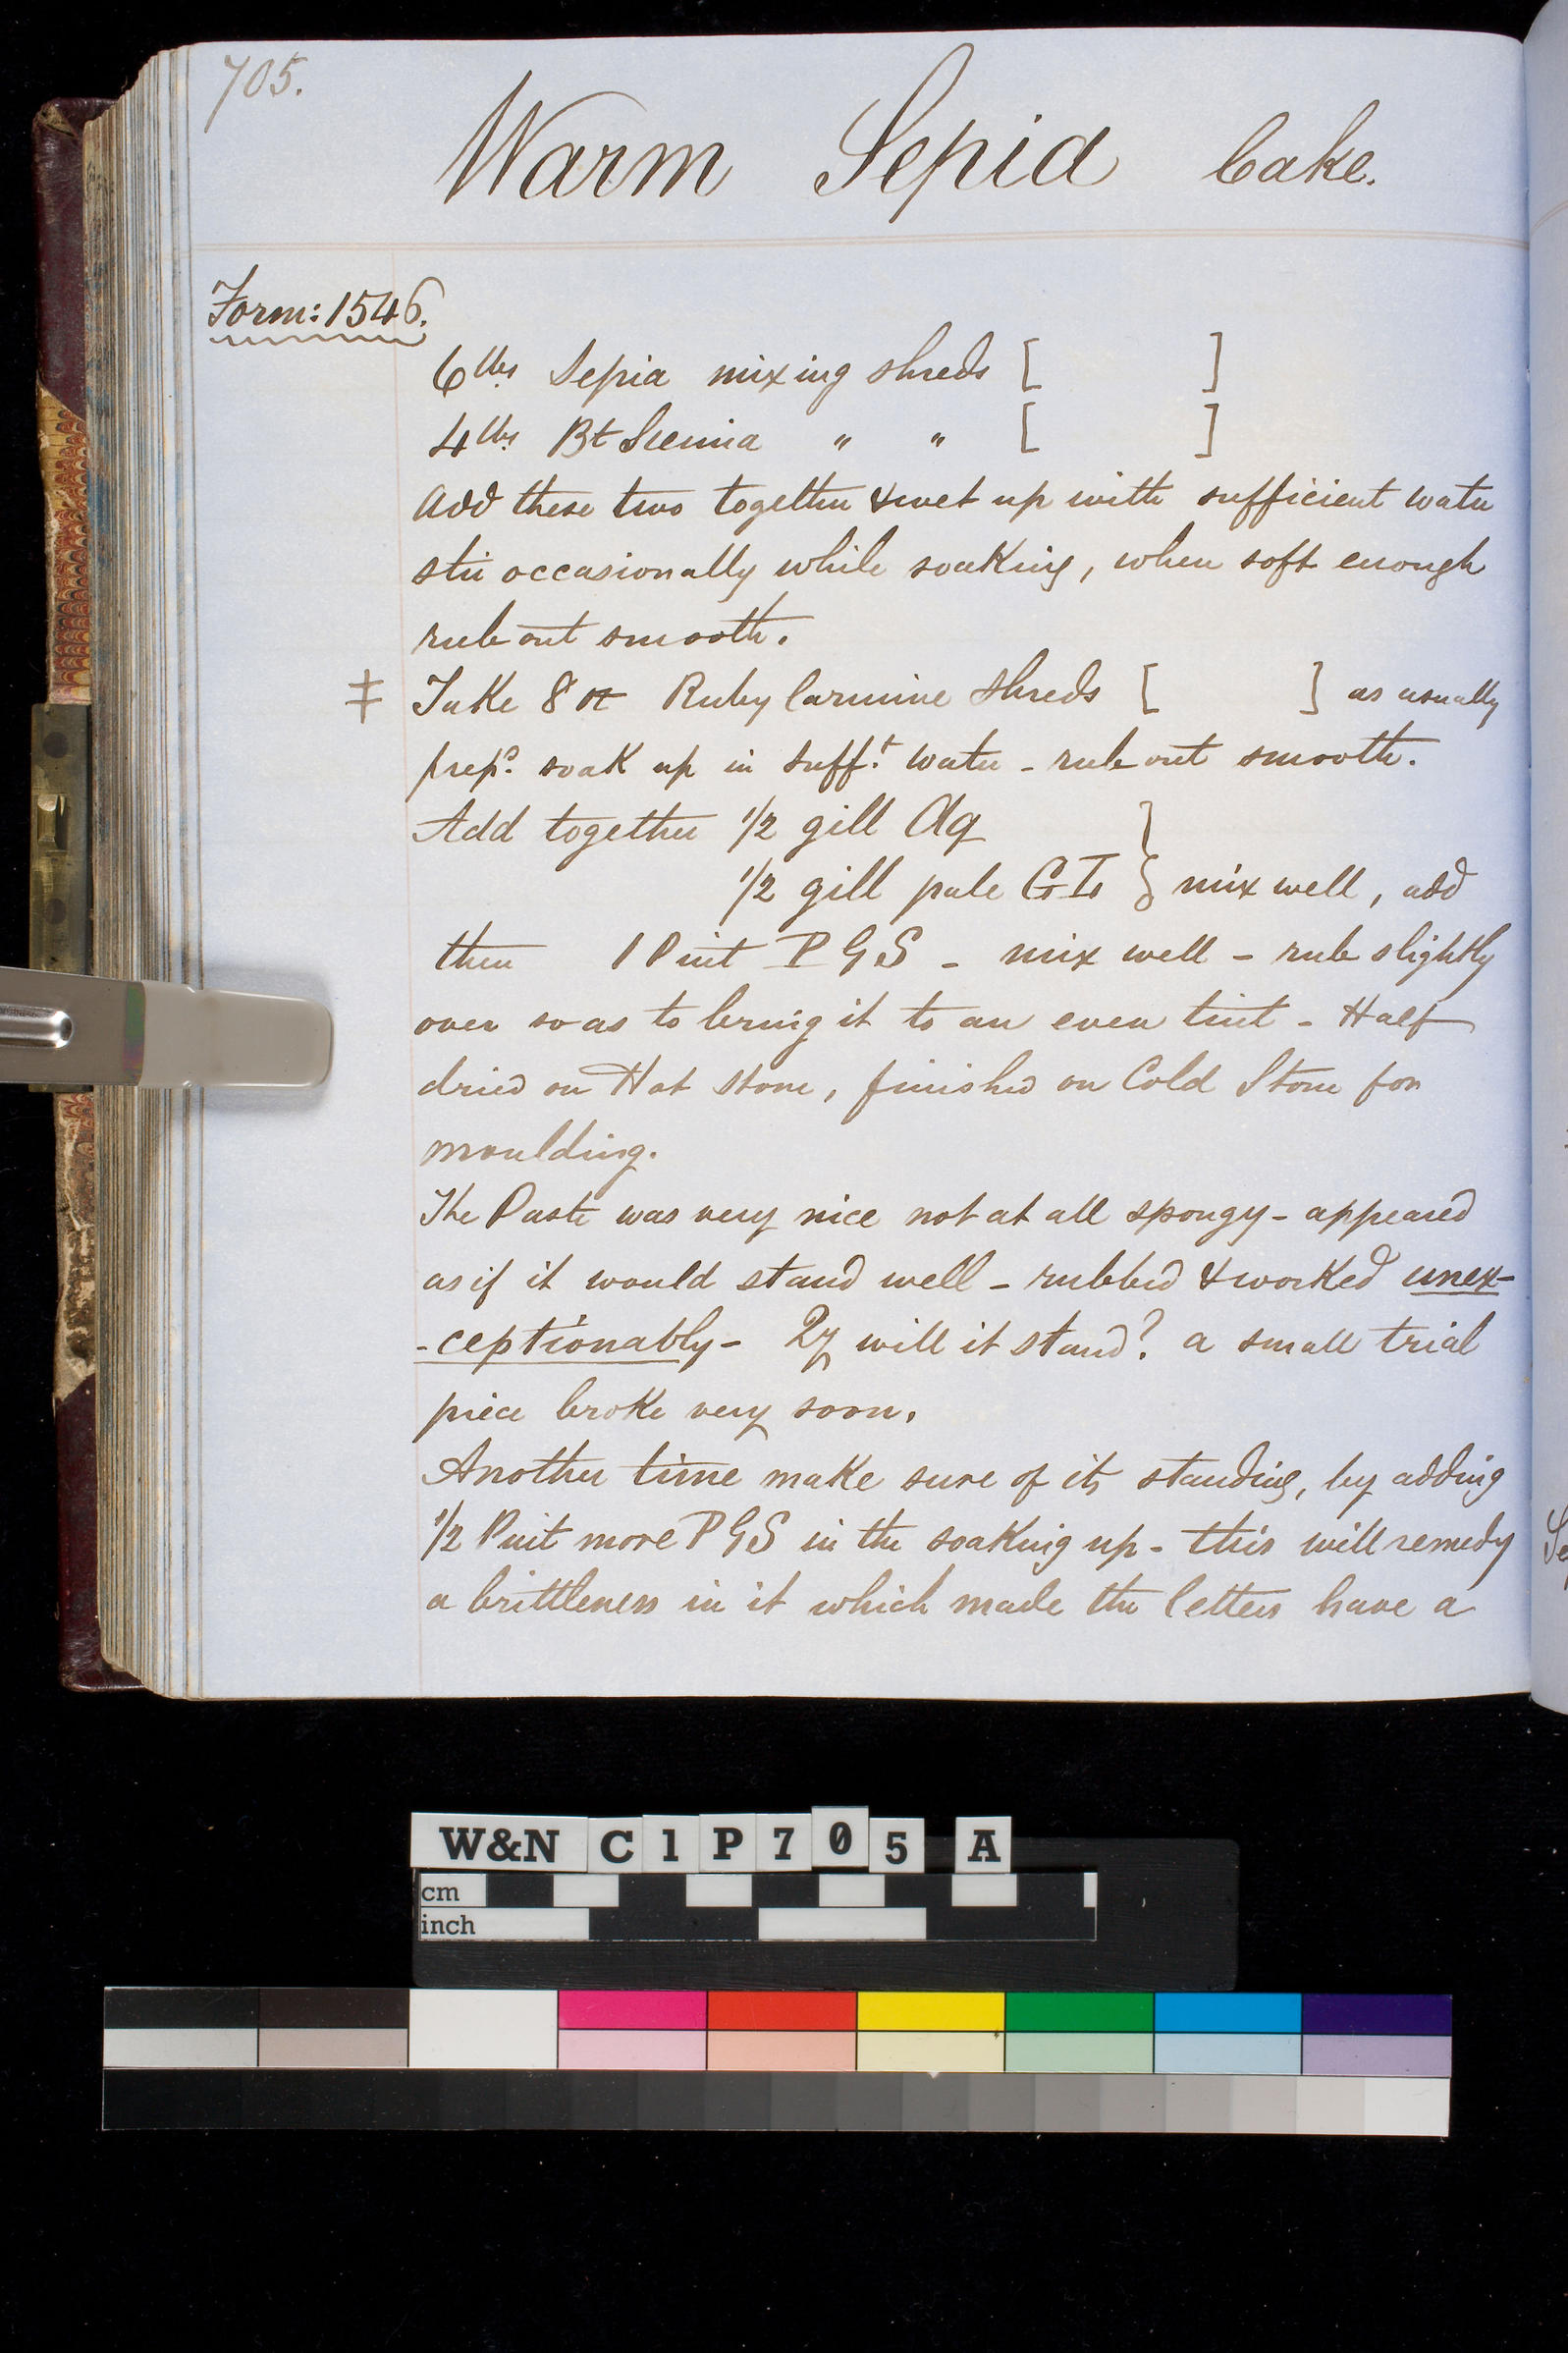 705.
Warm Sepia Cake.
Form: 1546.
6 lbs Sepia mixing shreds [ ]
4 lbs Bt Sienna " " [ ]
Add these two together & wet up with sufficient water
stir occasionally while soaking, when soft enough
rub out smooth.
‡ Take 8 oz Ruby Carmine Shreds [ ] as usually
prepd. soak up in sufft. water - rub out smooth.
Add together 1/2 gill Aq }
1/2 gill pale G I } mix well, add
then 1 Pint P G S - mix well - rub slightly
over so as to bring it to an even tint - Half
dried on Hot Stone, finished on Cold Stone for
moulding.
The Paste was very nice not at all spongy - appeared
as if it would stand well - rubbed & worked unex-
-ceptionably - Qy will it stand? a small trial
piece broke very soon.
Another time make sure of its standing, by adding
1/2 Pint more P G S in the soaking up - this will remedy
a brittleness in it which made the letters have a
W&N C1P705 A
cm
inch